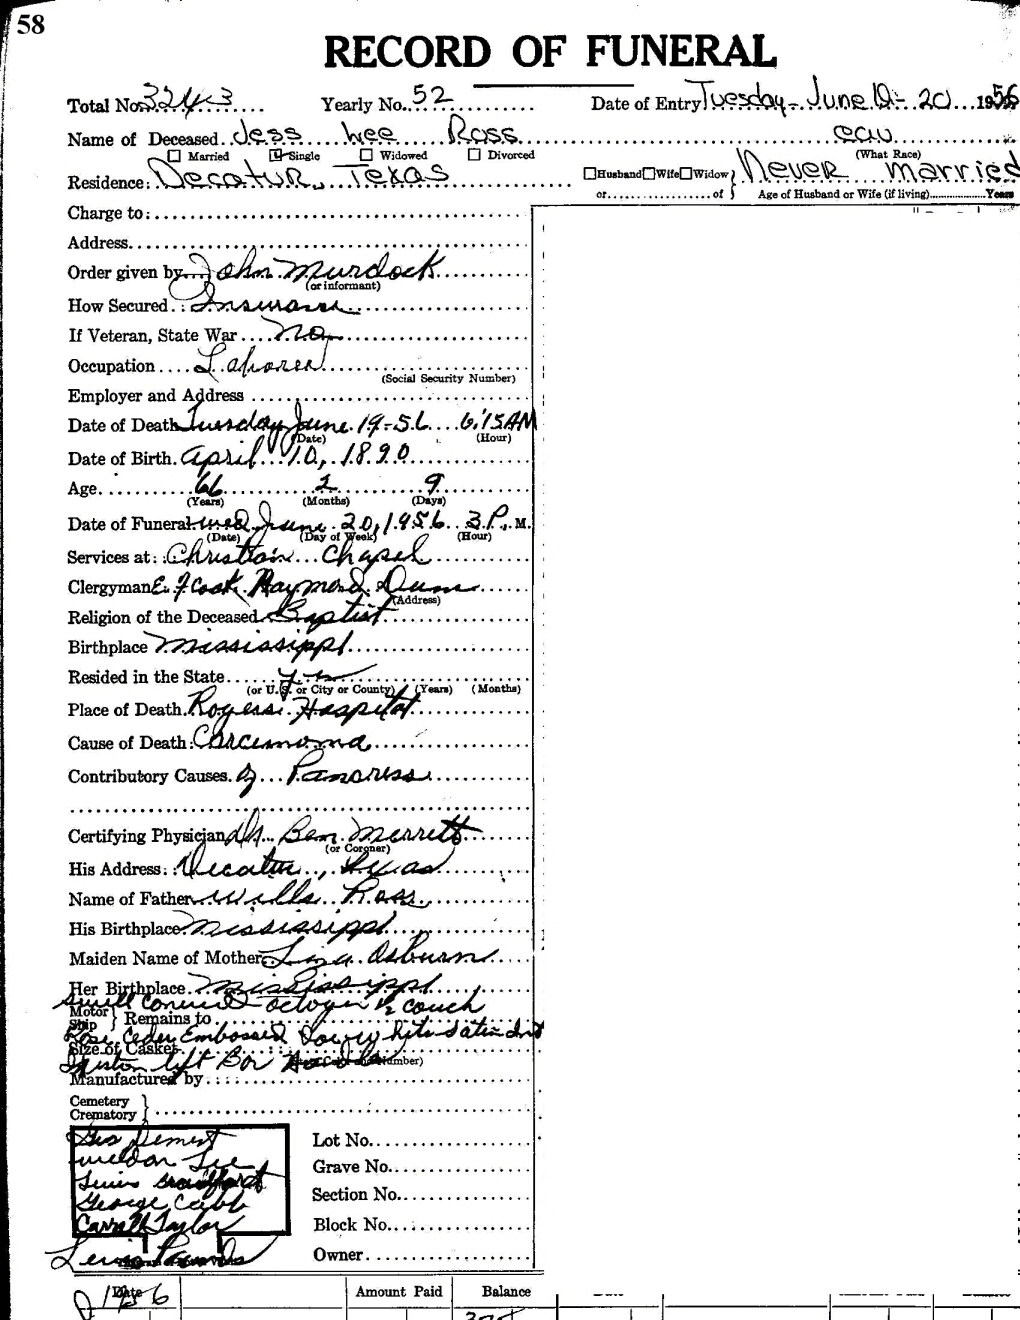 58
RECORD OF FUNERAL
Total No. 3243 Yearly No. 52 Date of Entry Tuesday - June 19 - 20 1956
Name of Deceased Jess Lee Ross cau
Married Single Widowed Divorced (What Race)
Residence: Decatur, Texas Husband Wife Widow } Never married
or of } Age of Husband or Wife (if living) Years
Charge to:
Address
Order given by John Murdock
(or informant)
How Secured: Insurance
If Veteran, State War no
Occupation Laborer
(Social Security Number)
Employer and Address
Date of Death Tuesday June 19-56 6:15 AM
(Date) (Hour)
Date of Birth April 10, 1890
Age 66 2 9
(Years) (Months) (Days)
Date of Funeral wed June 20, 1956 3 P. M.
(Date) (Day of Week) (Hour)
Services at: Christian Chapel
Clergyman E. F Cook Raymond Dunn
(Address)
Religion of the Deceased Baptist
Birthplace Mississippi
Resided in the State yes
(or U.S. or City or County) (Years) (Months)
Place of Death Rogers Hospital
Cause of Death: Carcimoma
Contributory Causes of Pancriss
Certifying Physician Dr. Ben Merritt
(or Coroner)
His Address: Decatur, Texas
Name of Father Wills Ross
His Birthplace Mississippi
Maiden Name of Mother Liza Osburn
Her Birthplace Mississippi
octogon ½ couch
Motor Ship } Remains to
Ceder Embossed satin Int
Size of Casket
lift Box
Manufactured by
Cemetery Crematory }
Lot No.
Weldon Lee
Grave No.
Section No.
George Cobb
Carroll Taylor
Block No.
Lewis
Owner
Date Amount Paid Balance
1956